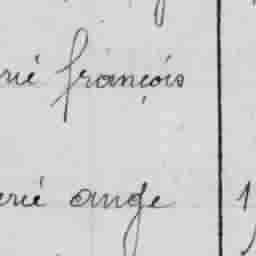 rié françois
erié ange 1